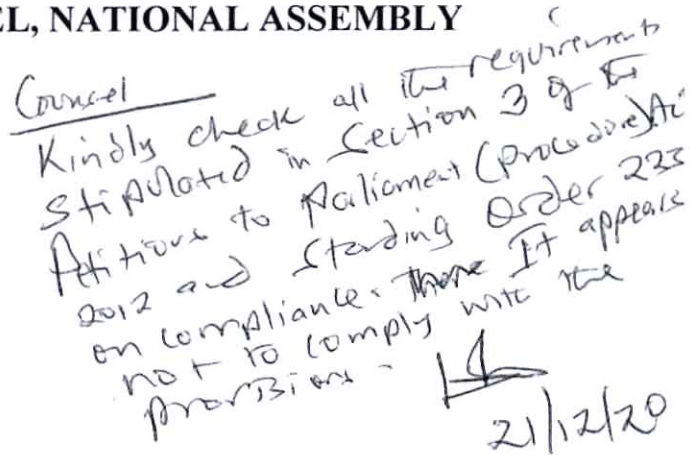 EL, NATIONAL ASSEMBLY
Counsel
Kindly check all the requirements
stipulated in Section 3 of the
Petitions to Parliament (procedure) Act
2012 and Standing Order 223
on compliance. It appears
not to comply with the
provisions.
21/12/20